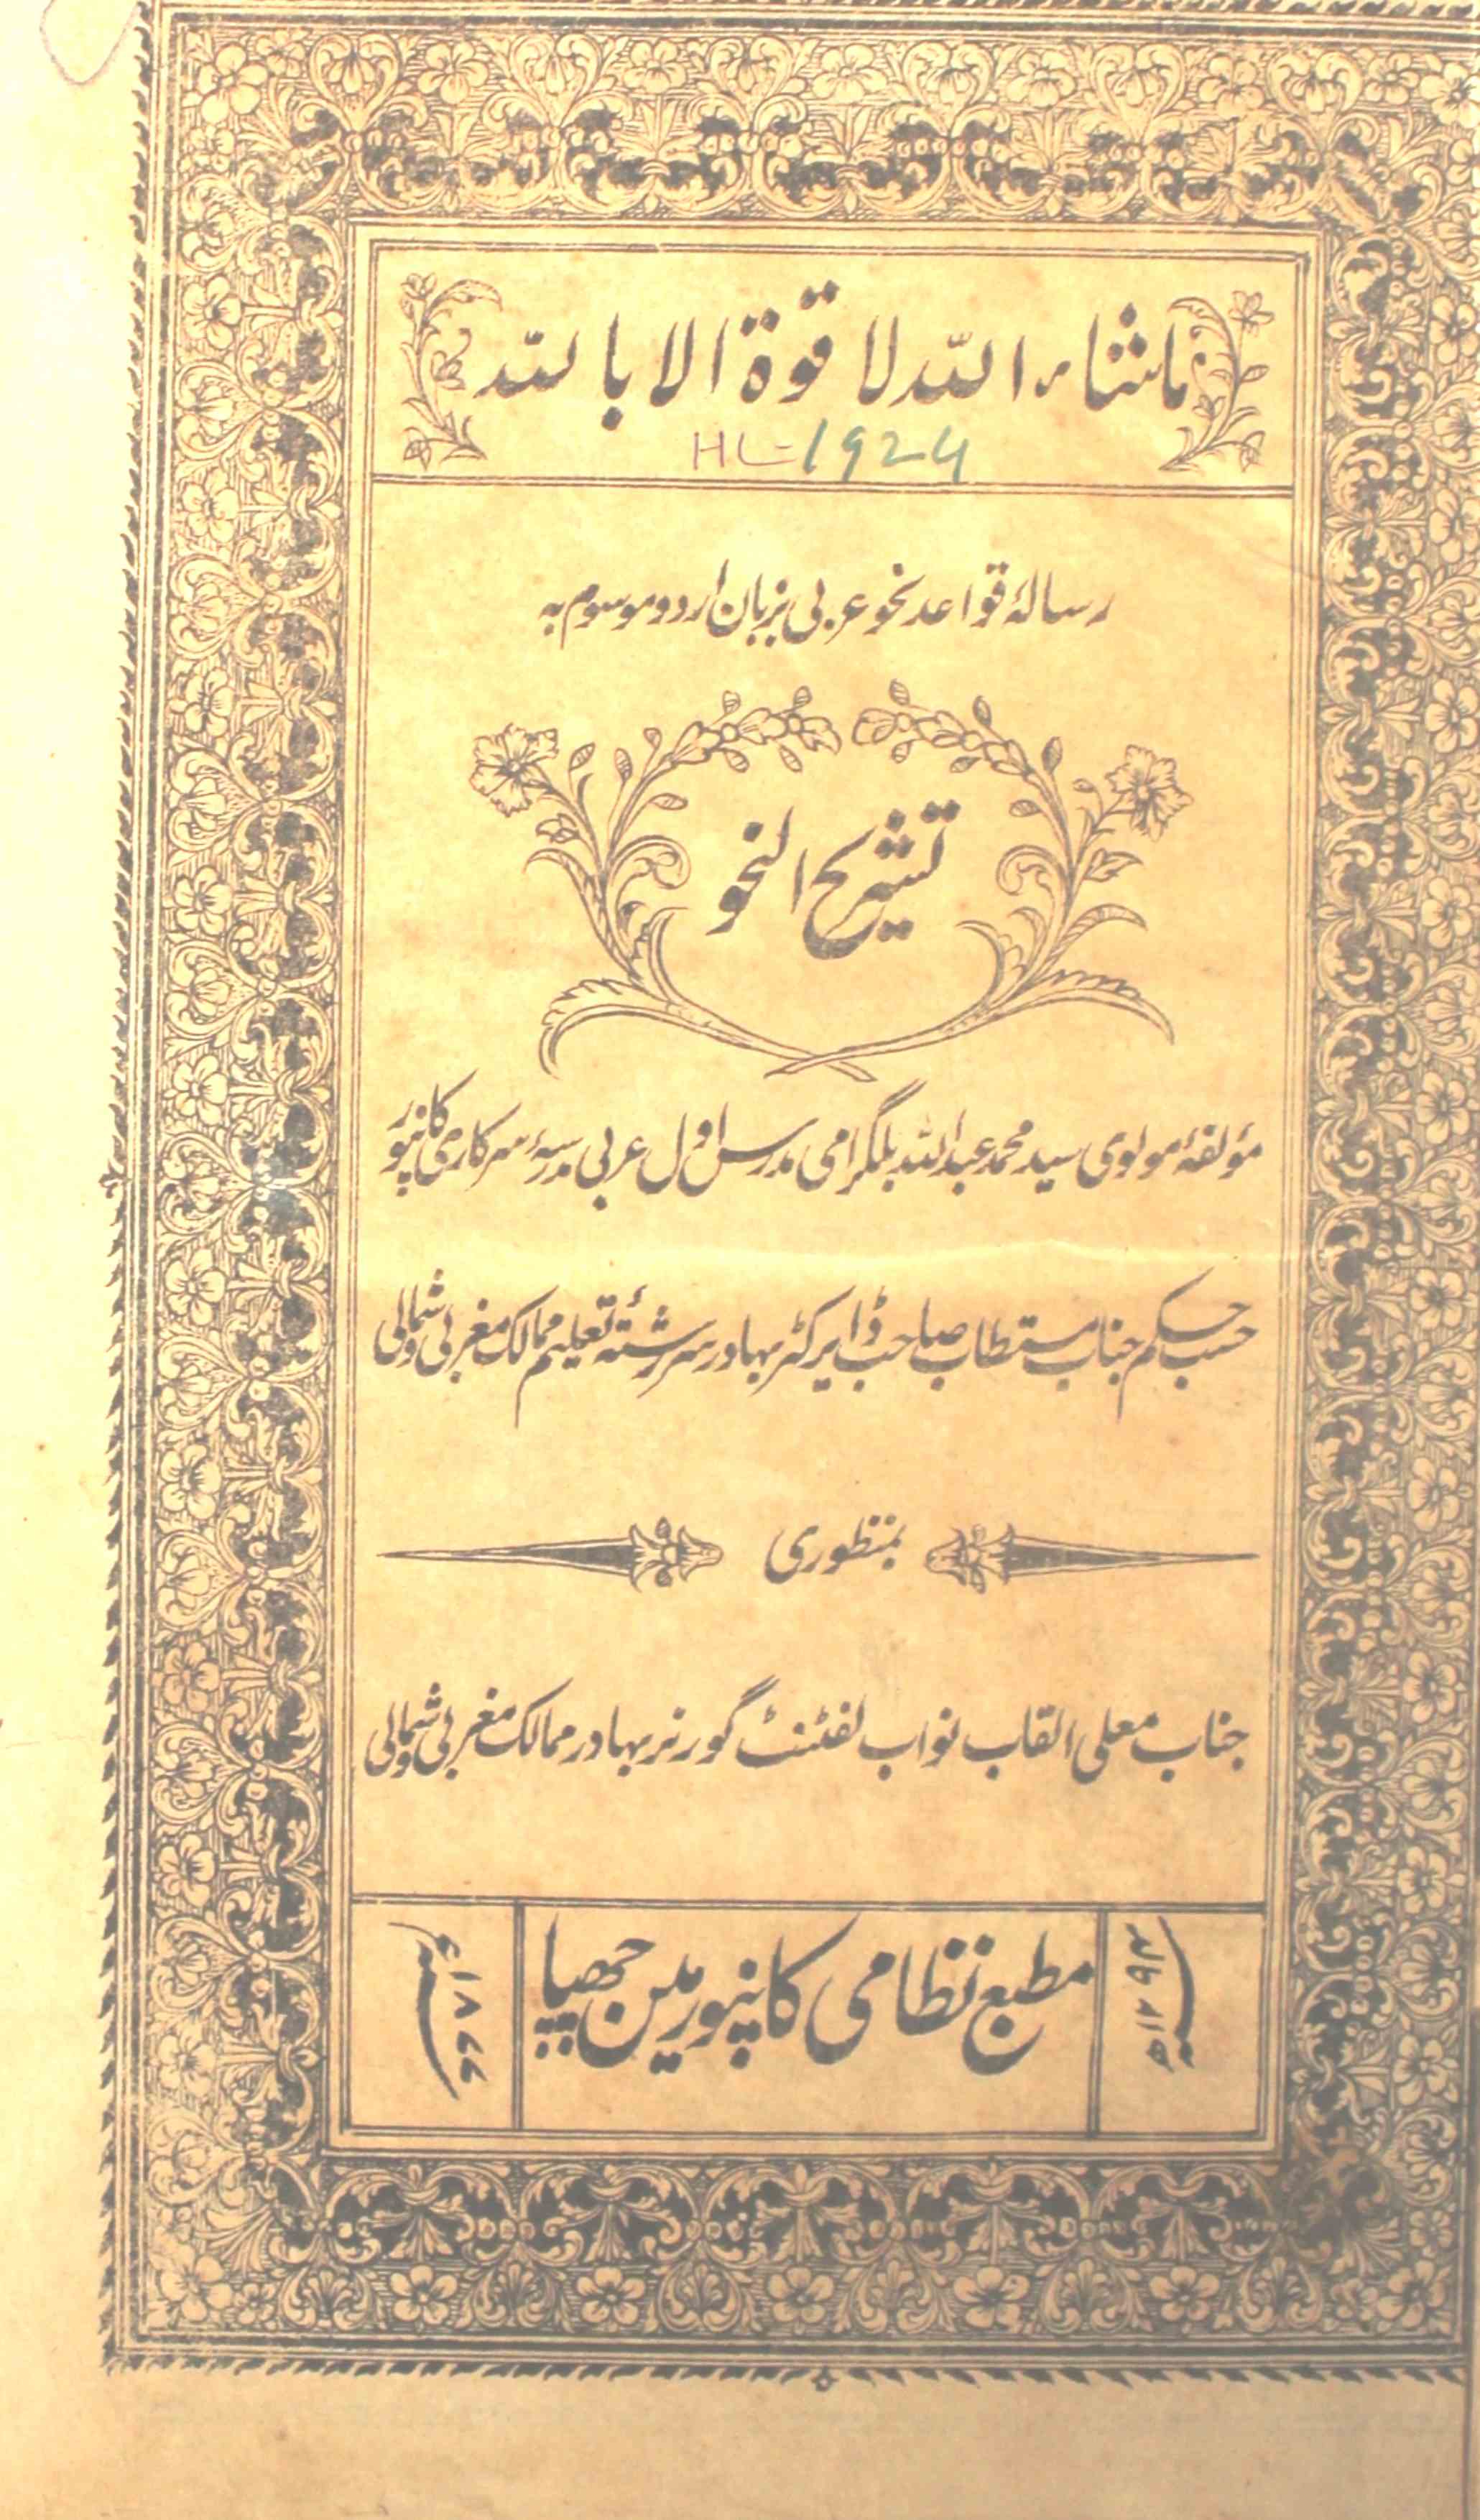 ماشاء اللہ لا قوۃ الا باللہ
HL-1924
رسالۂ قواعد نحو عربی بزبان اردو موسوم بہ
تشریح النحو
مؤلفۂ مولوی سید محمد عبداللہ بلگرامی مدرس اول عربی مدرسۂ سرکاری کانپور
حسب حکم جناب مستطاب صاحب ڈایرکٹر بہادر سررشتۂ تعلیم ممالک مغربی و شمالی
بمنظوری
جناب معلی القاب نواب لفٹننٹ گورنر بہادر ممالک مغربی و شمالی
سنہ ۱۲۹۴ھ
مطبع نظامی کانپور مین چھپا
سنہ ۱۸۷۷ء